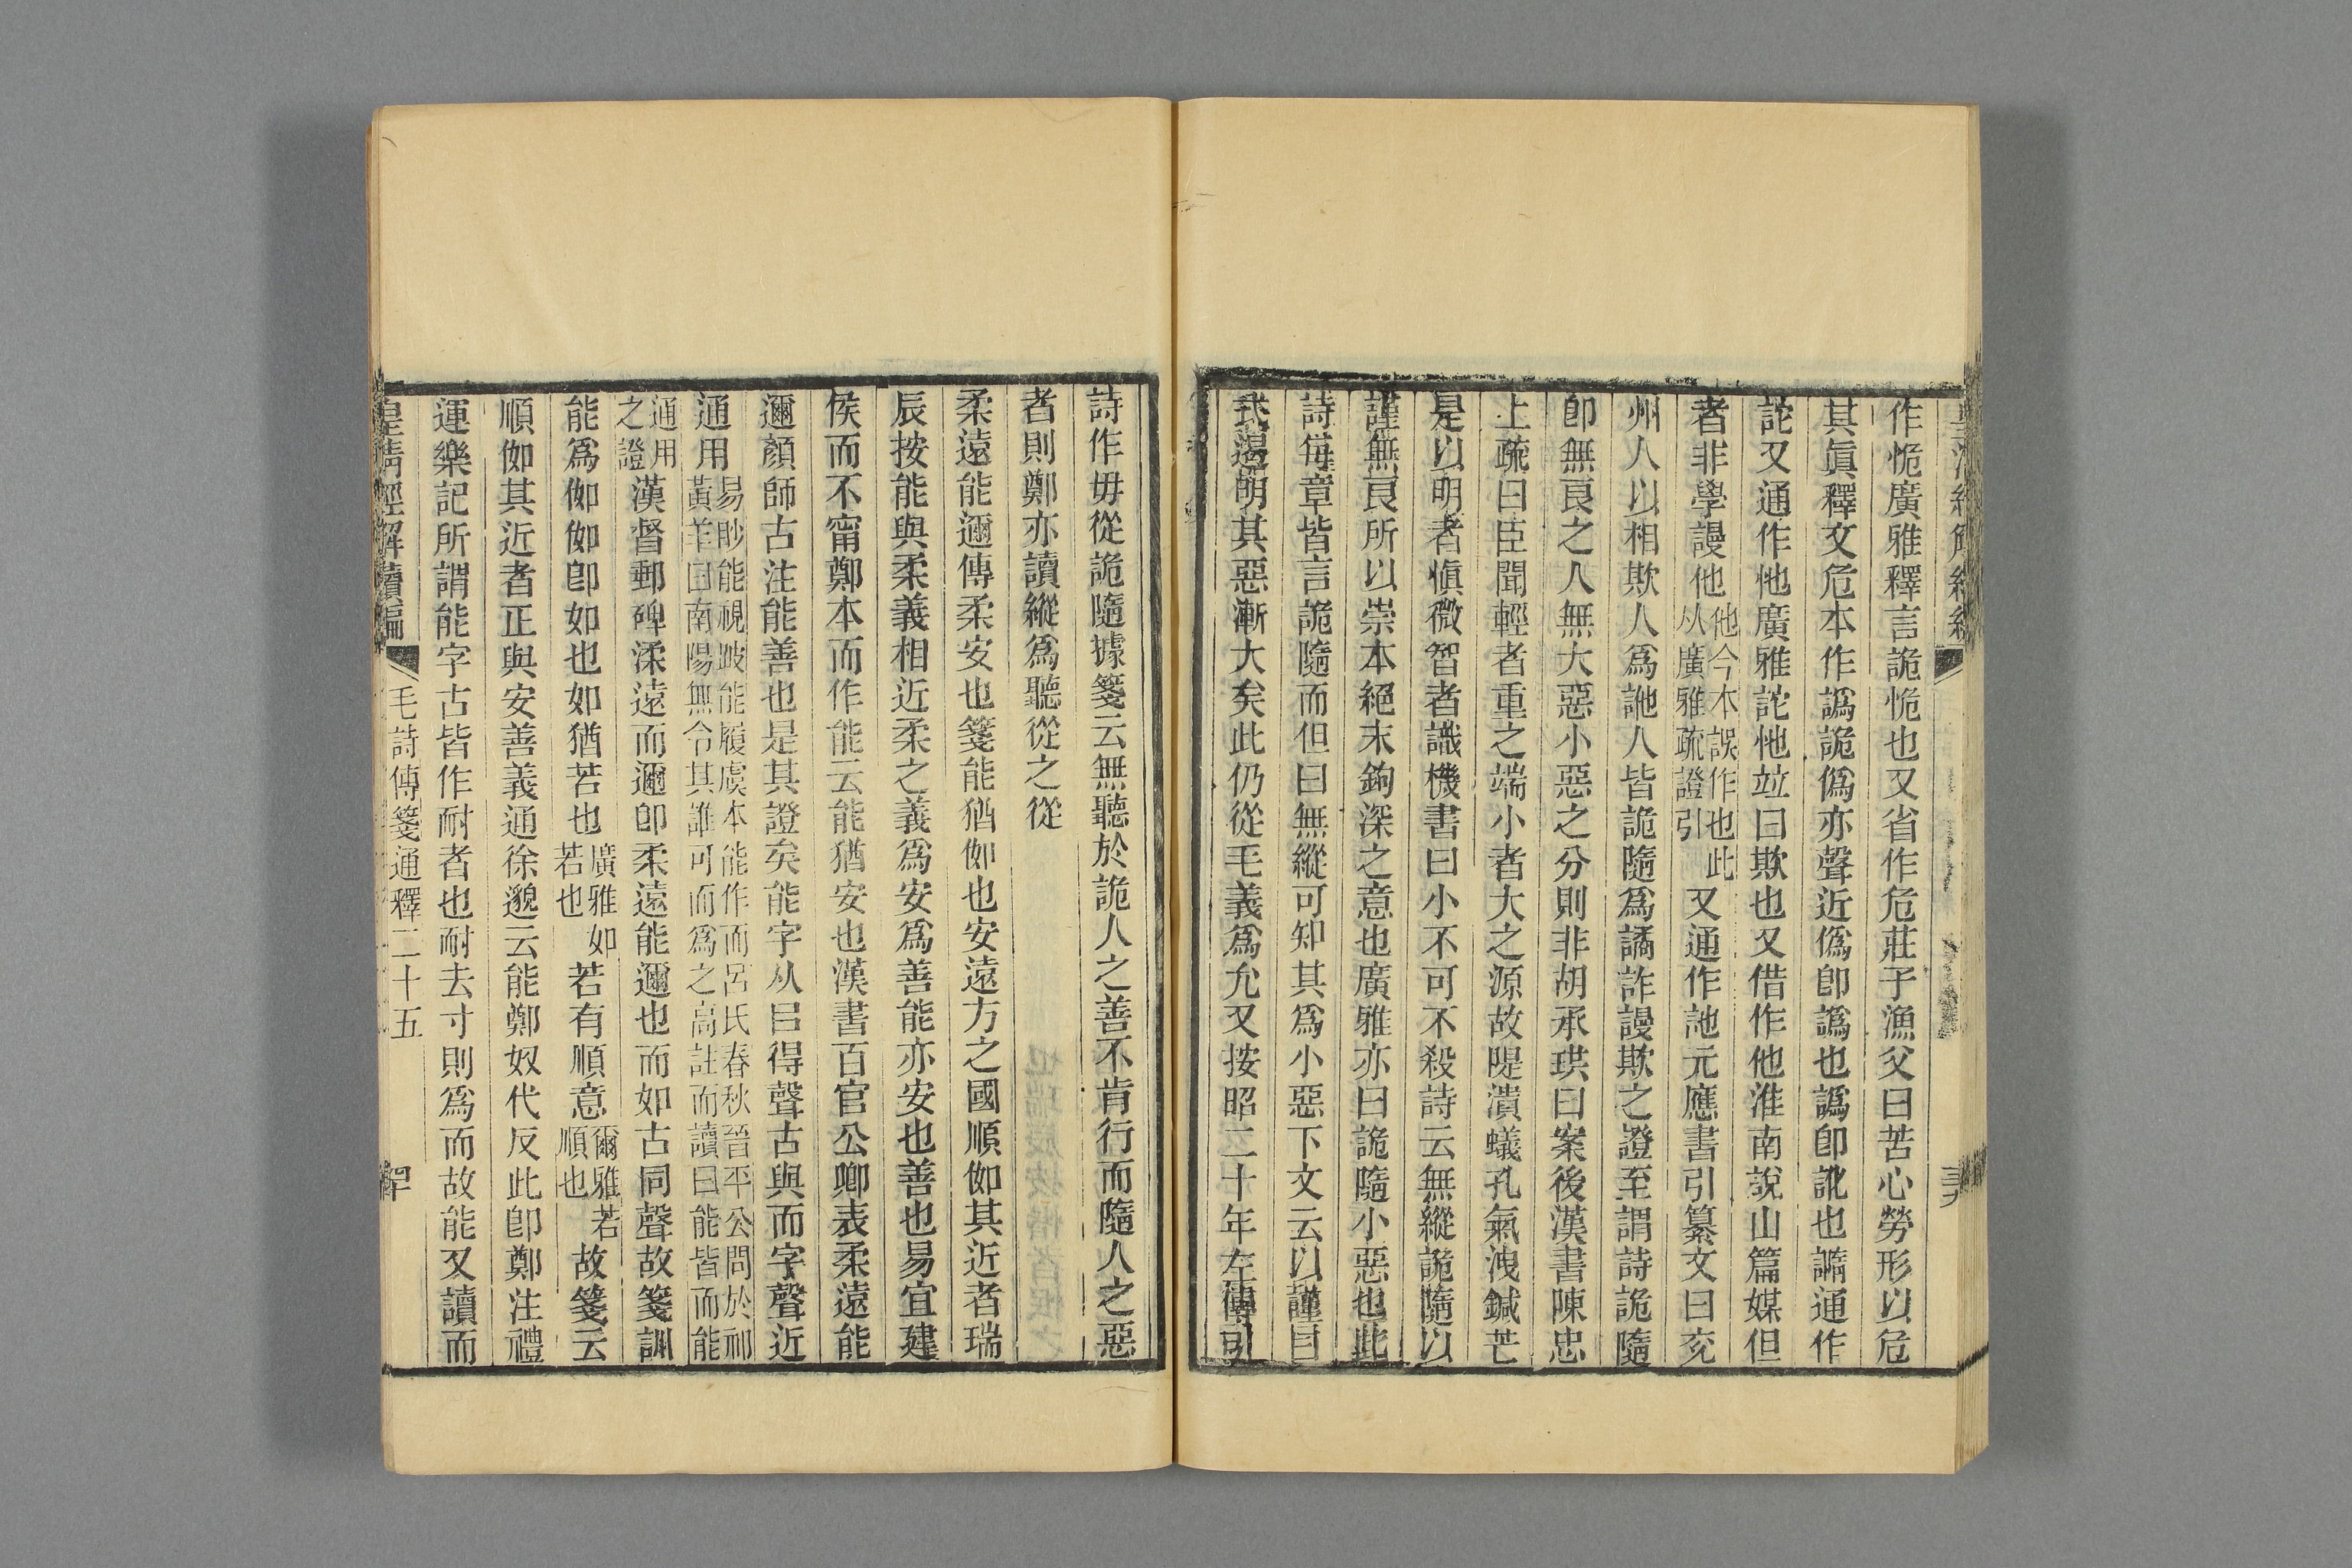 作恑廣雅釋言詭恑也又省作危莊子漁父曰苦心勞形以危
其眞釋文危本作譌詭僞亦聲近僞卽譌也譌卽訛也譌通作
詑又通作怉廣雅詑怉竝曰欺也又借作他淮南說山篇媒但
者非學謾他他今本誤作也此从廣雅疏證引又通作訑元應書引纂文曰兖
州人以相欺人爲訑人皆詭隨爲譎詐謾欺之證至謂詩詭隨
卽無良之人無大惡小惡之分則非胡承珙曰案後漢書陳忠
上疏曰臣聞輕者重之端小者大之源故隄潰蟻孔氣洩鍼芒
是以明者愼微智者識機書曰小不可不殺詩云無縱詭隨以
謹無良所以崇本絕末鉤深之意也廣雅亦曰詭隨小惡也此
詩每章皆言詭隨而但曰無縱可知其爲小惡下文云以謹曰
式遏明其惡漸大矣此仍從毛義爲允又按昭二十年左傳引
詩作毋從詭隨據箋云無聽於詭人之善不肯行而隨人之惡
者則鄭亦讀縱爲聽從之從
柔遠能邇傳柔安也箋能猶伽也安遠方之國順伽其近者瑞
辰按能與柔義相近柔之義爲安爲善能亦安也善也易宜建
侯而不甯鄭本而作能云能猶安也漢書百官公卿表柔遠能
邇顏師古注能善也是其證矣能字从㠯得聲古與而字聲近
通用易眇能視跛能履虞本能作而呂氏春秋晉平公問於祁黃羊曰南陽無令其誰可而爲之高註而讀曰能皆而能
通用之證漢督郵碑渘遠而邇卽柔遠能邇也而如古同聲故箋訓
能爲伽伽卽如也如猶若也廣雅如若也若有順意爾雅若順也故箋云
順伽其近者正與安善義通徐邈云能鄭奴代反此卽鄭注禮
運樂記所謂能字古皆作耐者也耐去寸則爲而故能又讀而
皇清經解續編 毛詩傳箋通釋二十五